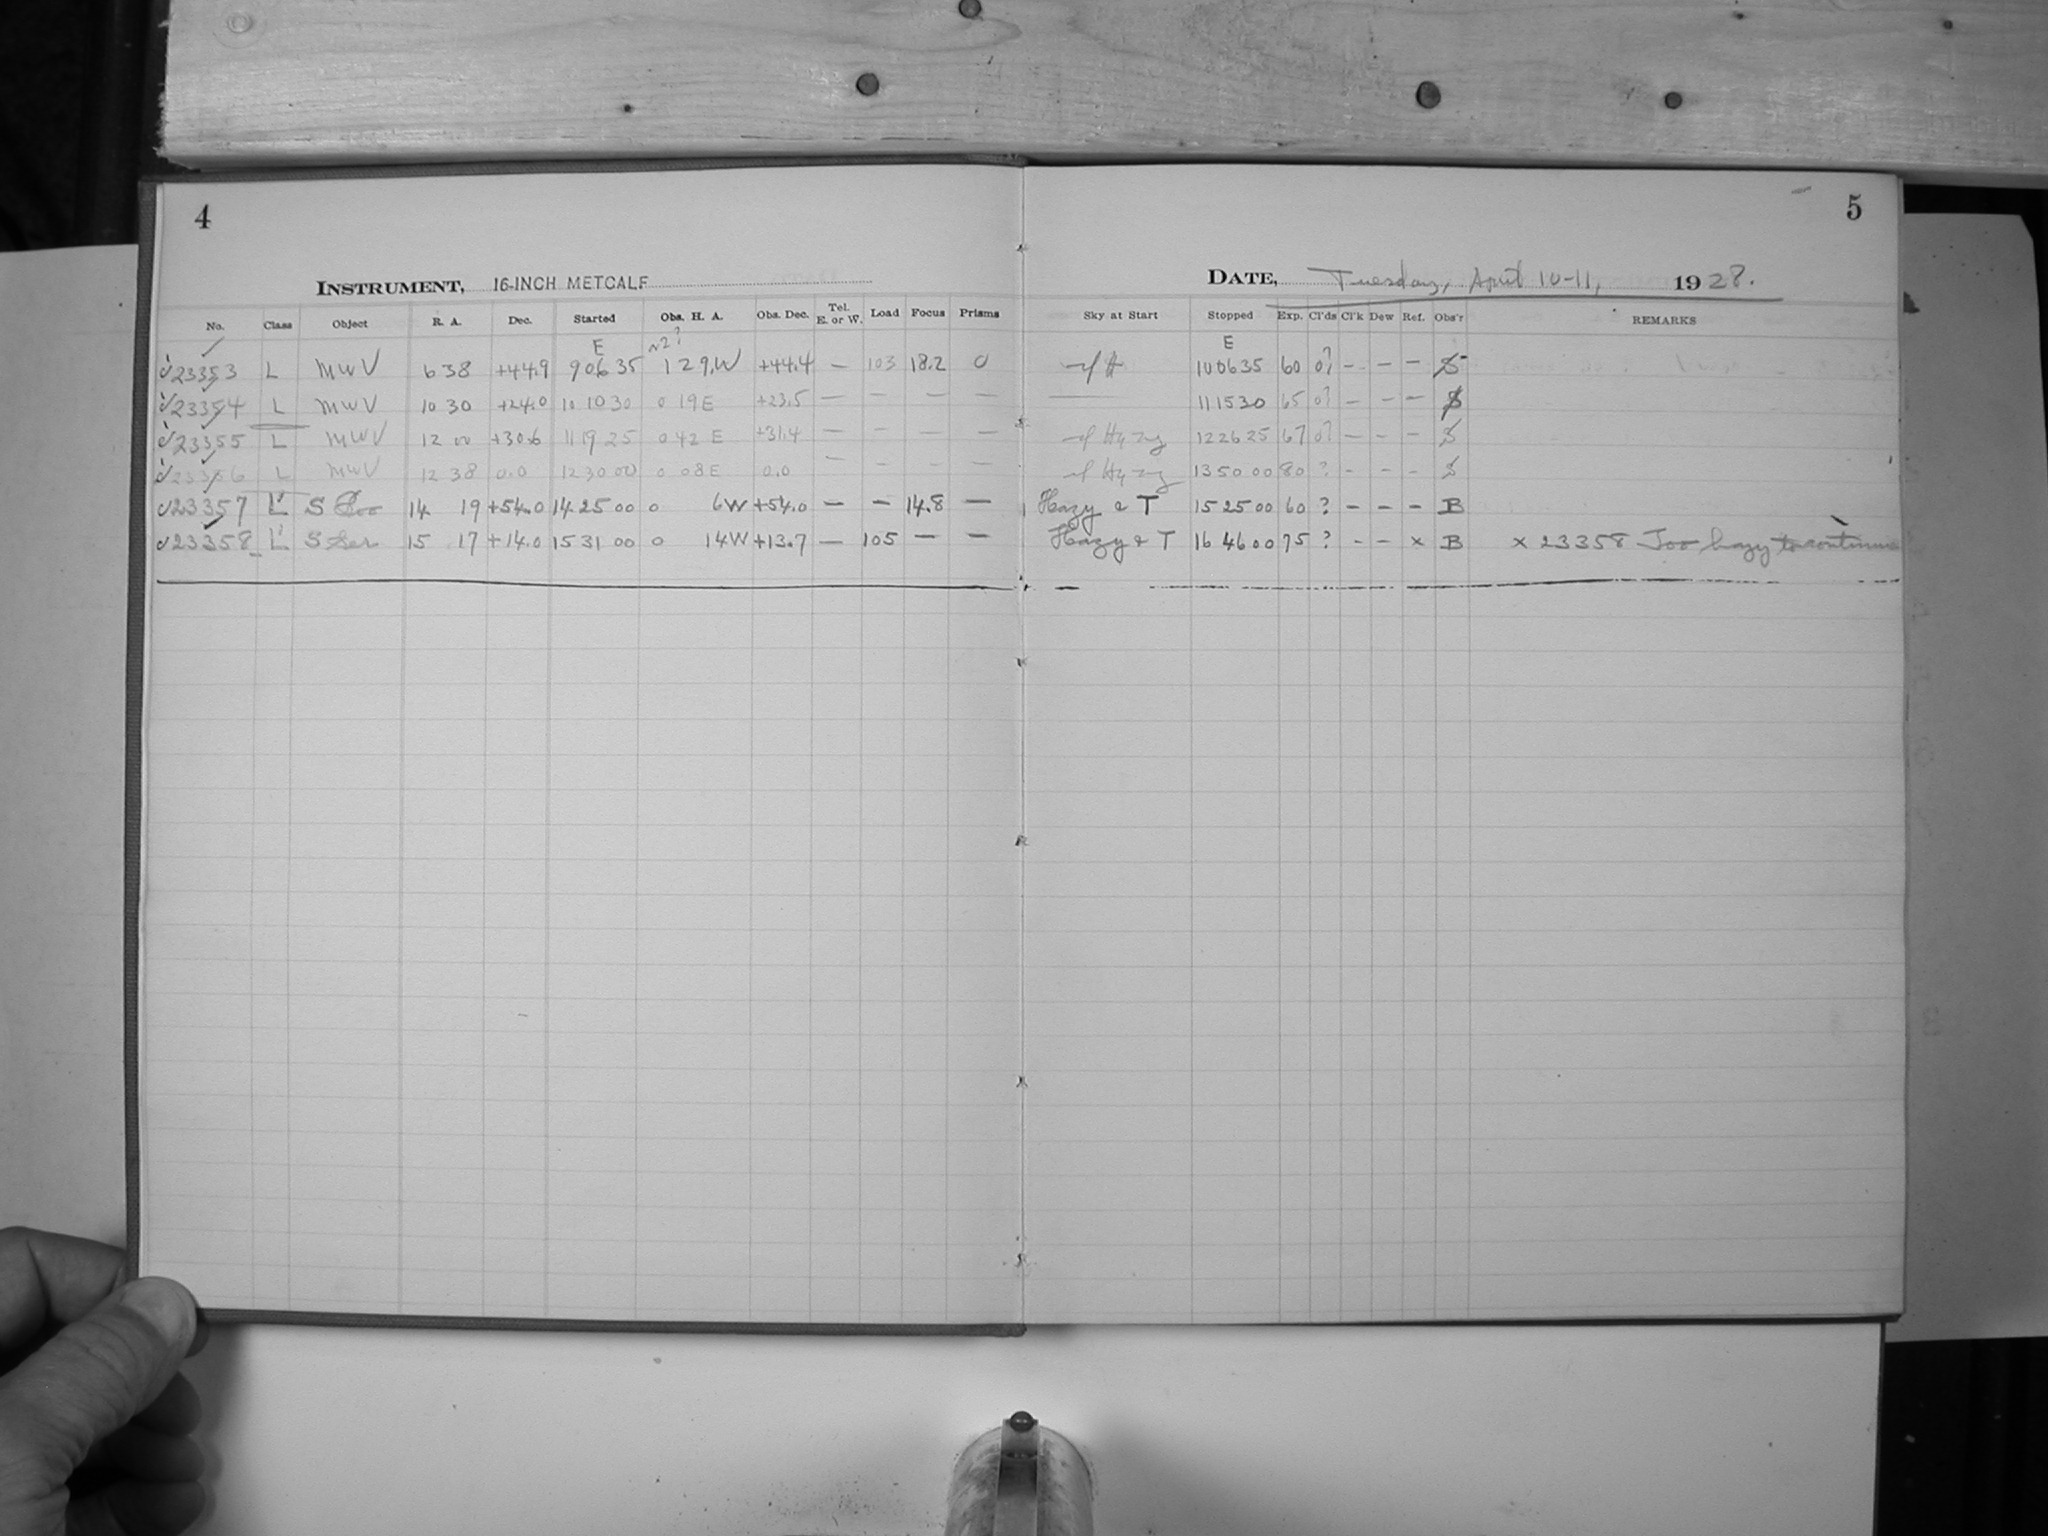 4
5
INSTRUMENT, 16-INCH METCALF
DATE, Tuesday, April 10-11, 1928.
No. Class Object R. A. Dec. Started Obs. H. A. Obs. Dec. Tel. E. or W. Load Focus Prisms Sky at Start Stopped Exp. Cl'ds Cl'k Dew Ref. Obs'r REMARKS
E E
23353 L MWV 6 38 +44.9 9 06 35 1 29 W +44.4 — 103 18.2 0 10 06 35 60 0? - - - S
23354 L MWV 10 30 +24.0 10 10 30 0 19 E +23.5 — — — — 11 15 30 65 0? - - - S
23355 L MWV 12 00 +30.6 11 19 25 0 42 E +31.4 — — — — 12 26 25 67 0? - - - S
23356 L MWV 12 38 0.0 12 30 00 0 08 E 0.0 — — — — 13 50 00 80 ? - - - S
23357 L' S Boo 14 19 +54.0 14 25 00 0 6W +54.0 — — 14.8 — Hazy & T 15 25 00 60 ? - - - B
23358 L' S Ser 15 17 +14.0 15 31 00 0 14W +13.7 — 105 — — Hazy & T 16 46 00 75 ? - - × B × 23358 Too hazy to continue